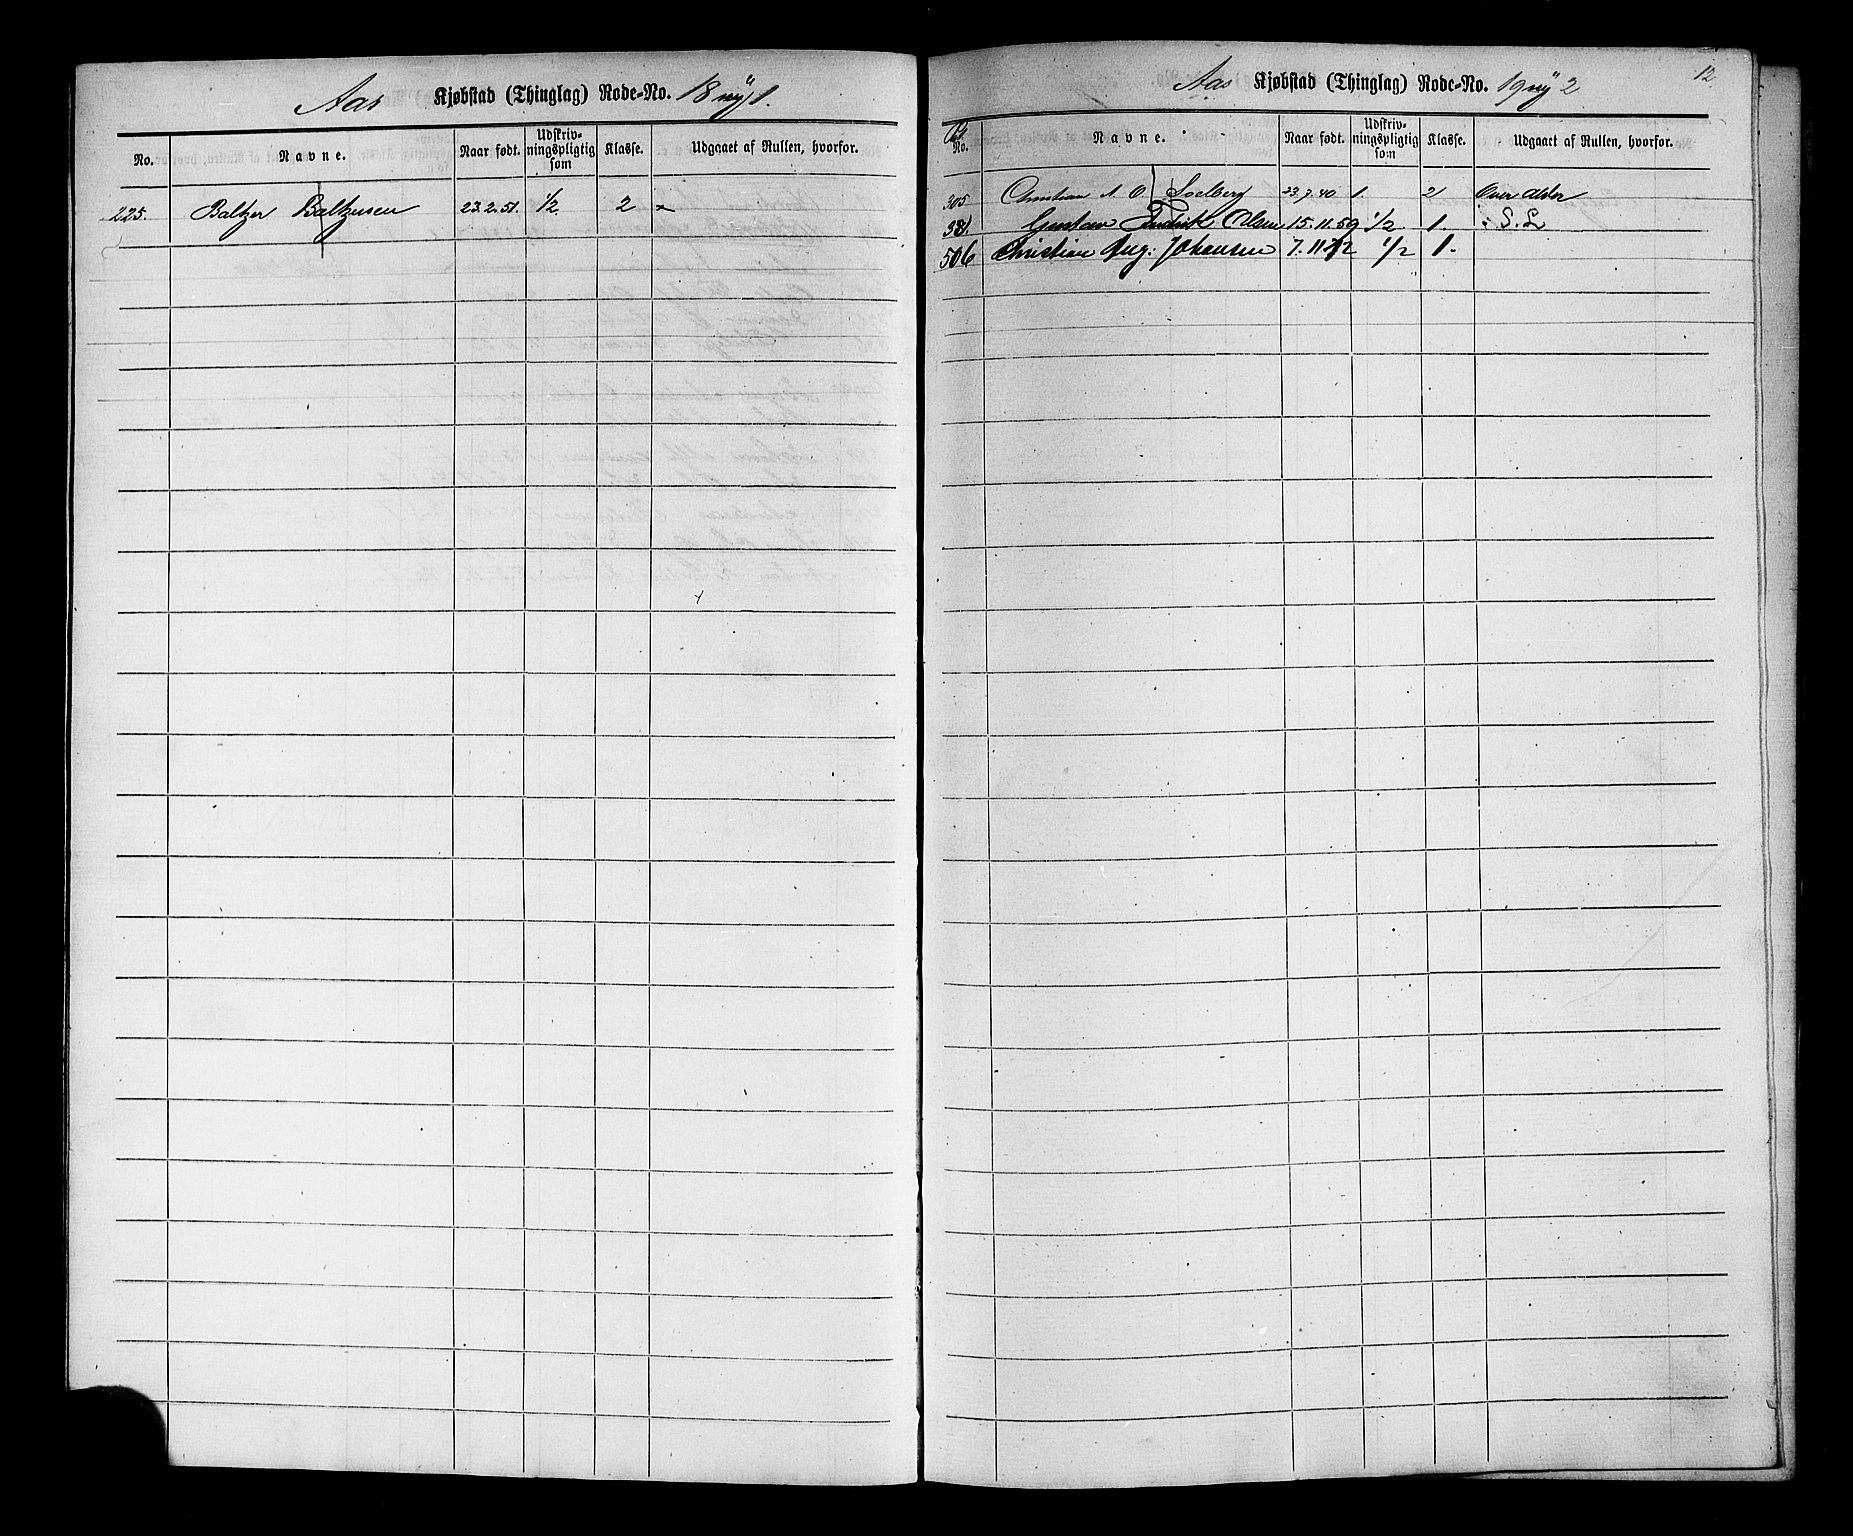 Aas Kjøbstad (Thinglag) Rode-No. 18 ny 1.
No. Navne. Naar født. Udskriv-ningspligtig som Klasse. Udgaaet af Rullen, hvorfor.
225. Baltzer Baltzersen 23.2.51. 1/2 2
12
Aas Kjøbstad (Thinglag) Rode-No. 19 ny 2
No. Navne. Naar født. Udskriv-ningspligtig som Klasse. Udgaaet af Rullen, hvorfor.
305. Christian A. O. Soelberg 23.7.40 1. 2 Over alder
381. Gustav Fredrik Olsen 15.11.59 1/2 1. S.L
506 Christian Aug. Johansen 7.11.72 1/2 1.